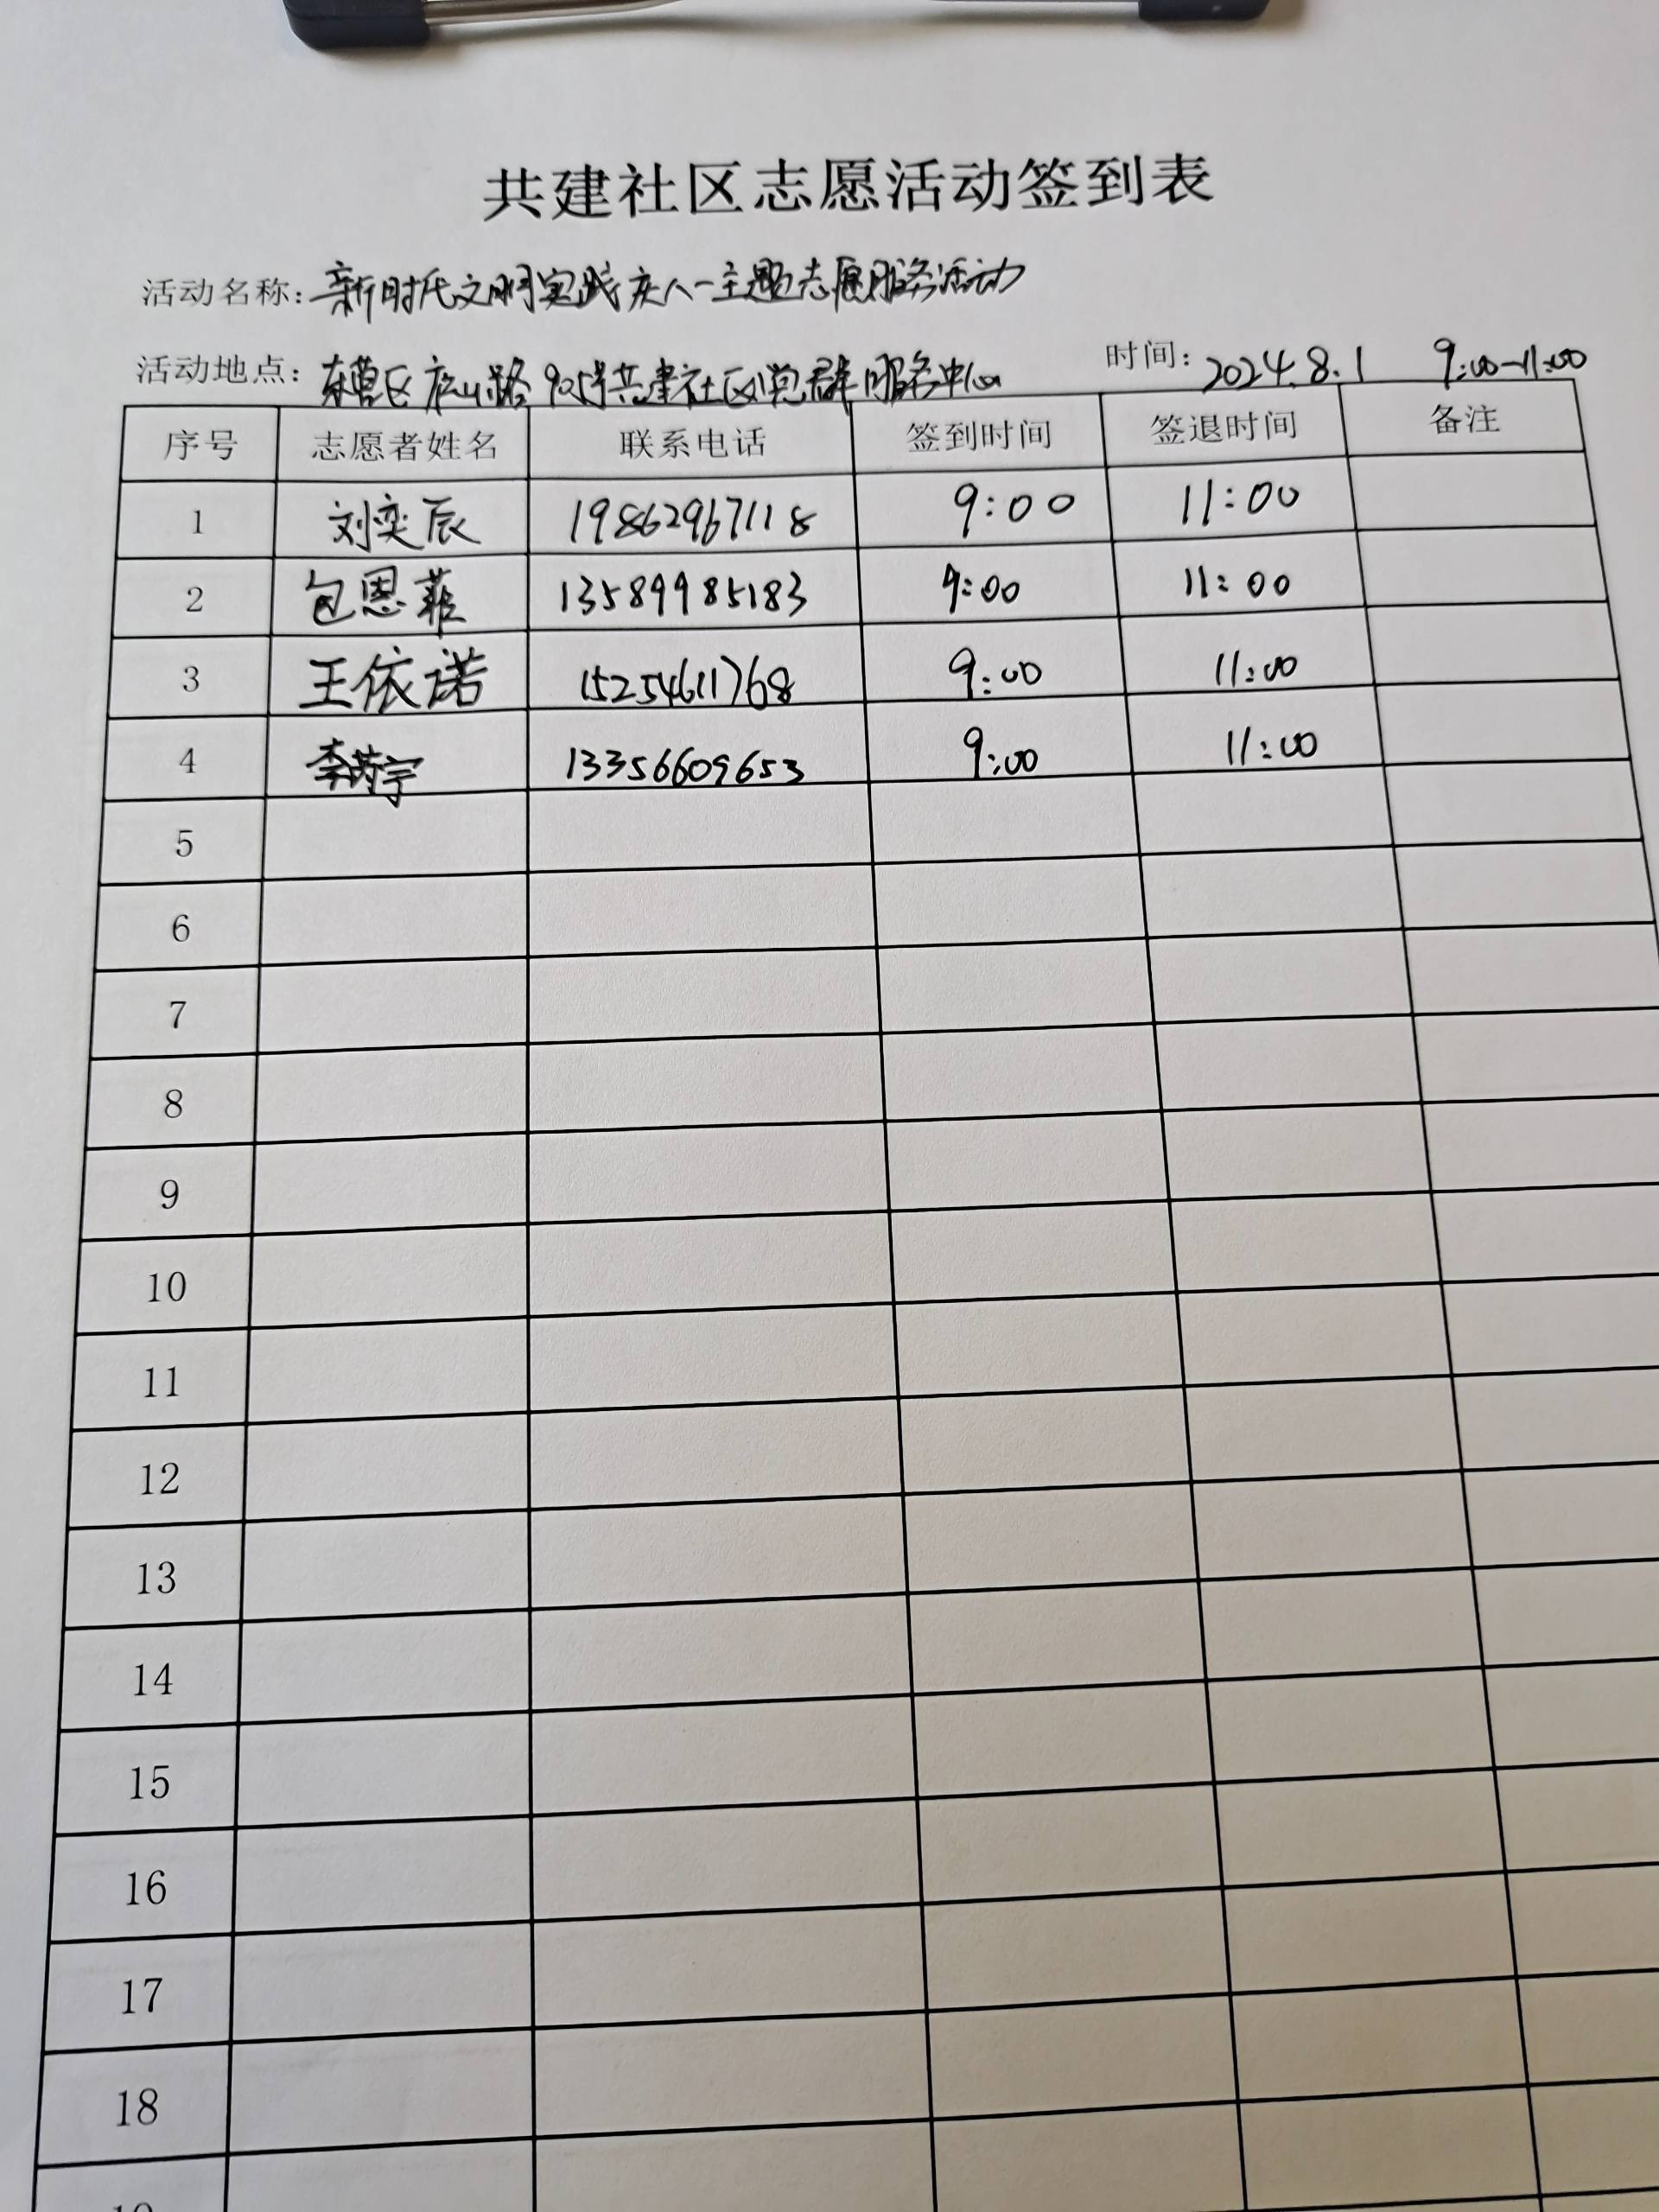 共建社区志愿活动签到表
活动名称：新时代文明实践庆八一主题志愿服务活动
活动地点：东营区庐山路905号共建社区党群服务中心 时间：2024.8.1 9:00-11:00
序号 志愿者姓名 联系电话 签到时间 签退时间 备注
1 刘奕辰 19862967118 9:00 11:00
2 包恩菲 13589985183 9:00 11:00
3 王依诺 15254611768 9:00 11:00
4 李芮宇 13356609653 9:00 11:00
5
6
7
8
9
10
11
12
13
14
15
16
17
18